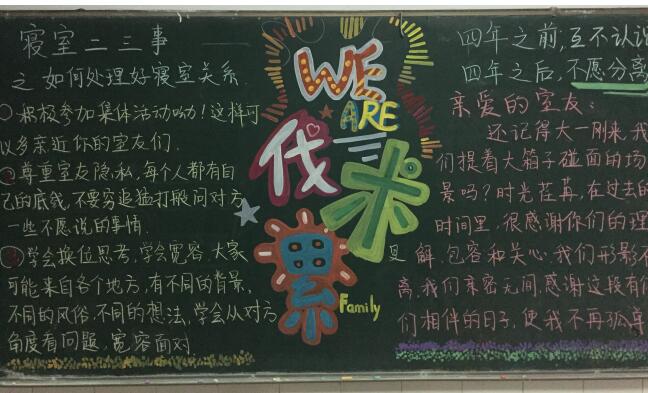 寝室二三事
之如何处理好寝室关系
○积极参加集体活动呦！这样可
以多亲近你的室友们.
尊重室友隐私,每个人都有自
己的底线,不要穷追猛打般问对方
一些不愿说的事情.
学会换位思考,学会宽容,大家
可能来自各个地方,有不同的背景,
不同的风俗,不同的想法,学会从对方
角度看问题,宽容面对
WE
ARE
伐木累
Family
四年之前,互不认识
四年之后,不愿分离
亲爱的室友:
还记得大一刚来,我
们提着大箱子碰面的场
景吗?时光荏苒,在过去的
时间里,很感谢你们的理
解,包容和关心.我们形影不
离,我们亲密无间,感谢这段有你
们相伴的日子,使我不再孤单